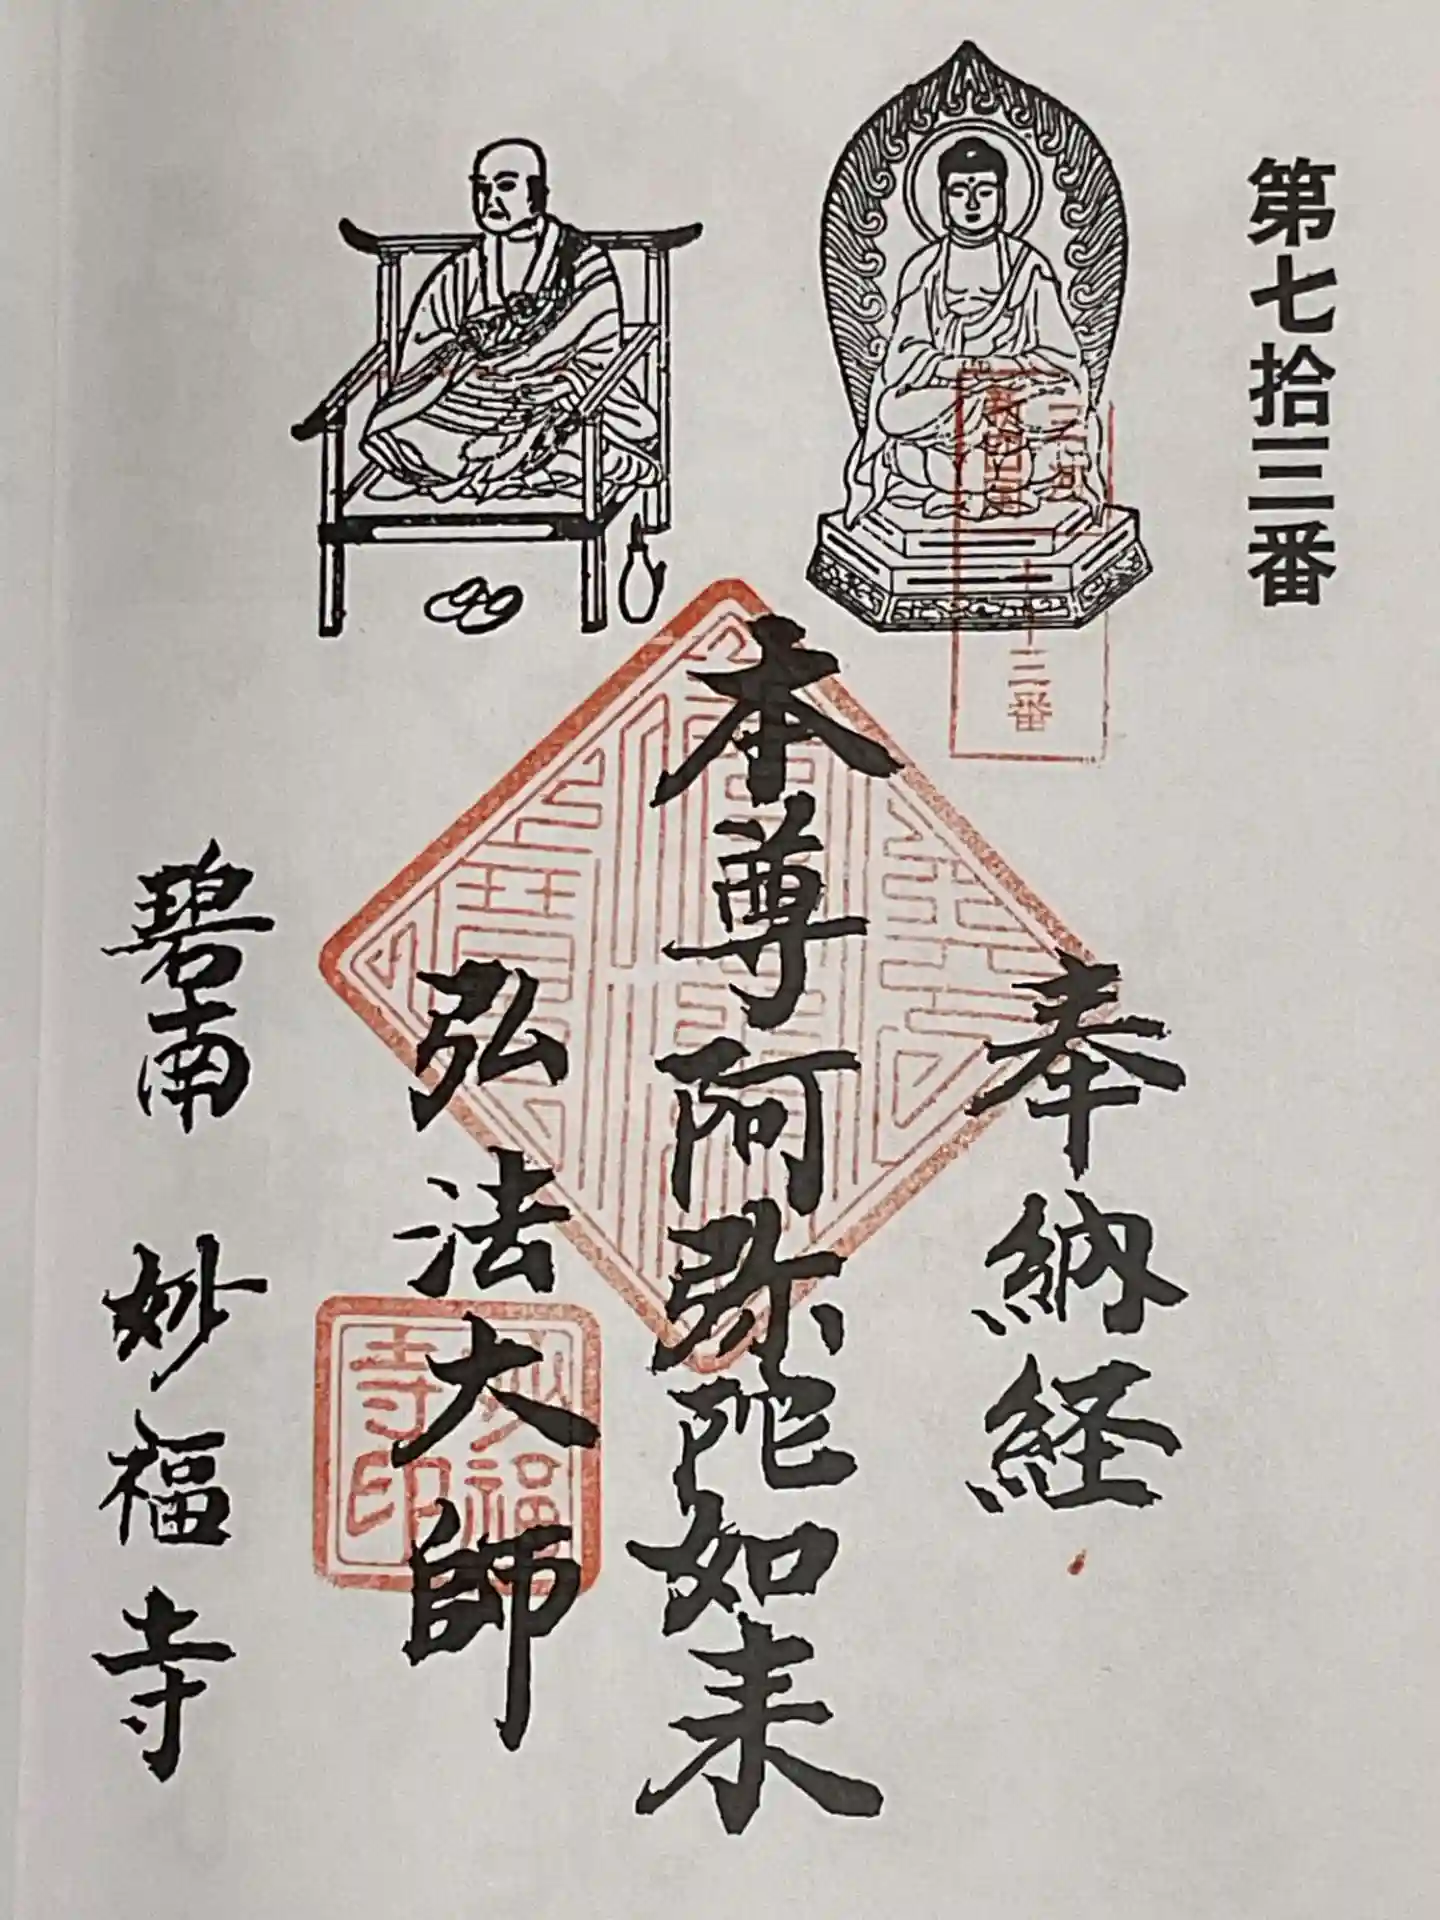 第七拾三番
三河
三番
奉納経
本尊阿弥陀如来
弘法大師
妙福
寺印
碧南 妙福寺